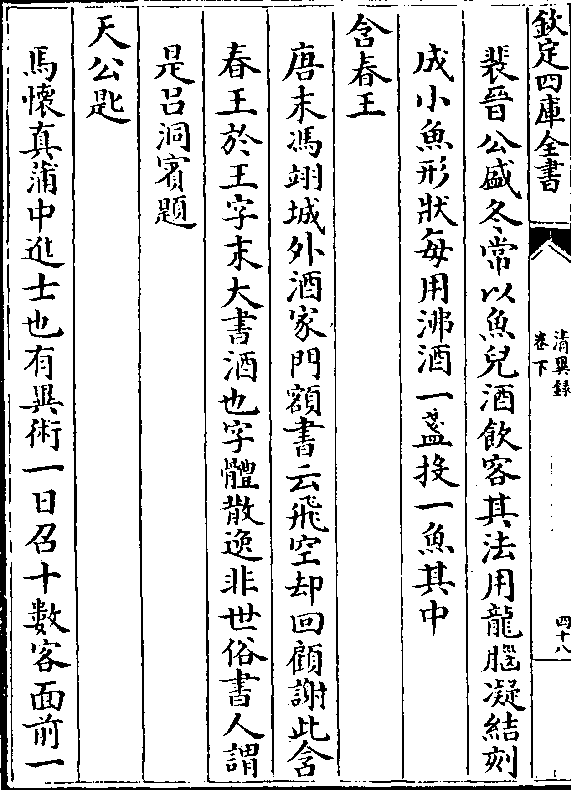 欽定四庫全書
清異録
卷下
四十八
裴晉公盛冬常以魚兒酒飲客其法用龍腦凝結刻
成小魚形狀每用沸酒一盞投一魚其中
含春王
唐末馮翊城外酒家門額書云飛空却回顧謝此含
春王於王字末大書酒也字體散逸非世俗書人謂
是呂洞賓題
天公匙
馬懷真蒲中進士也有異術一日召十數客面前一